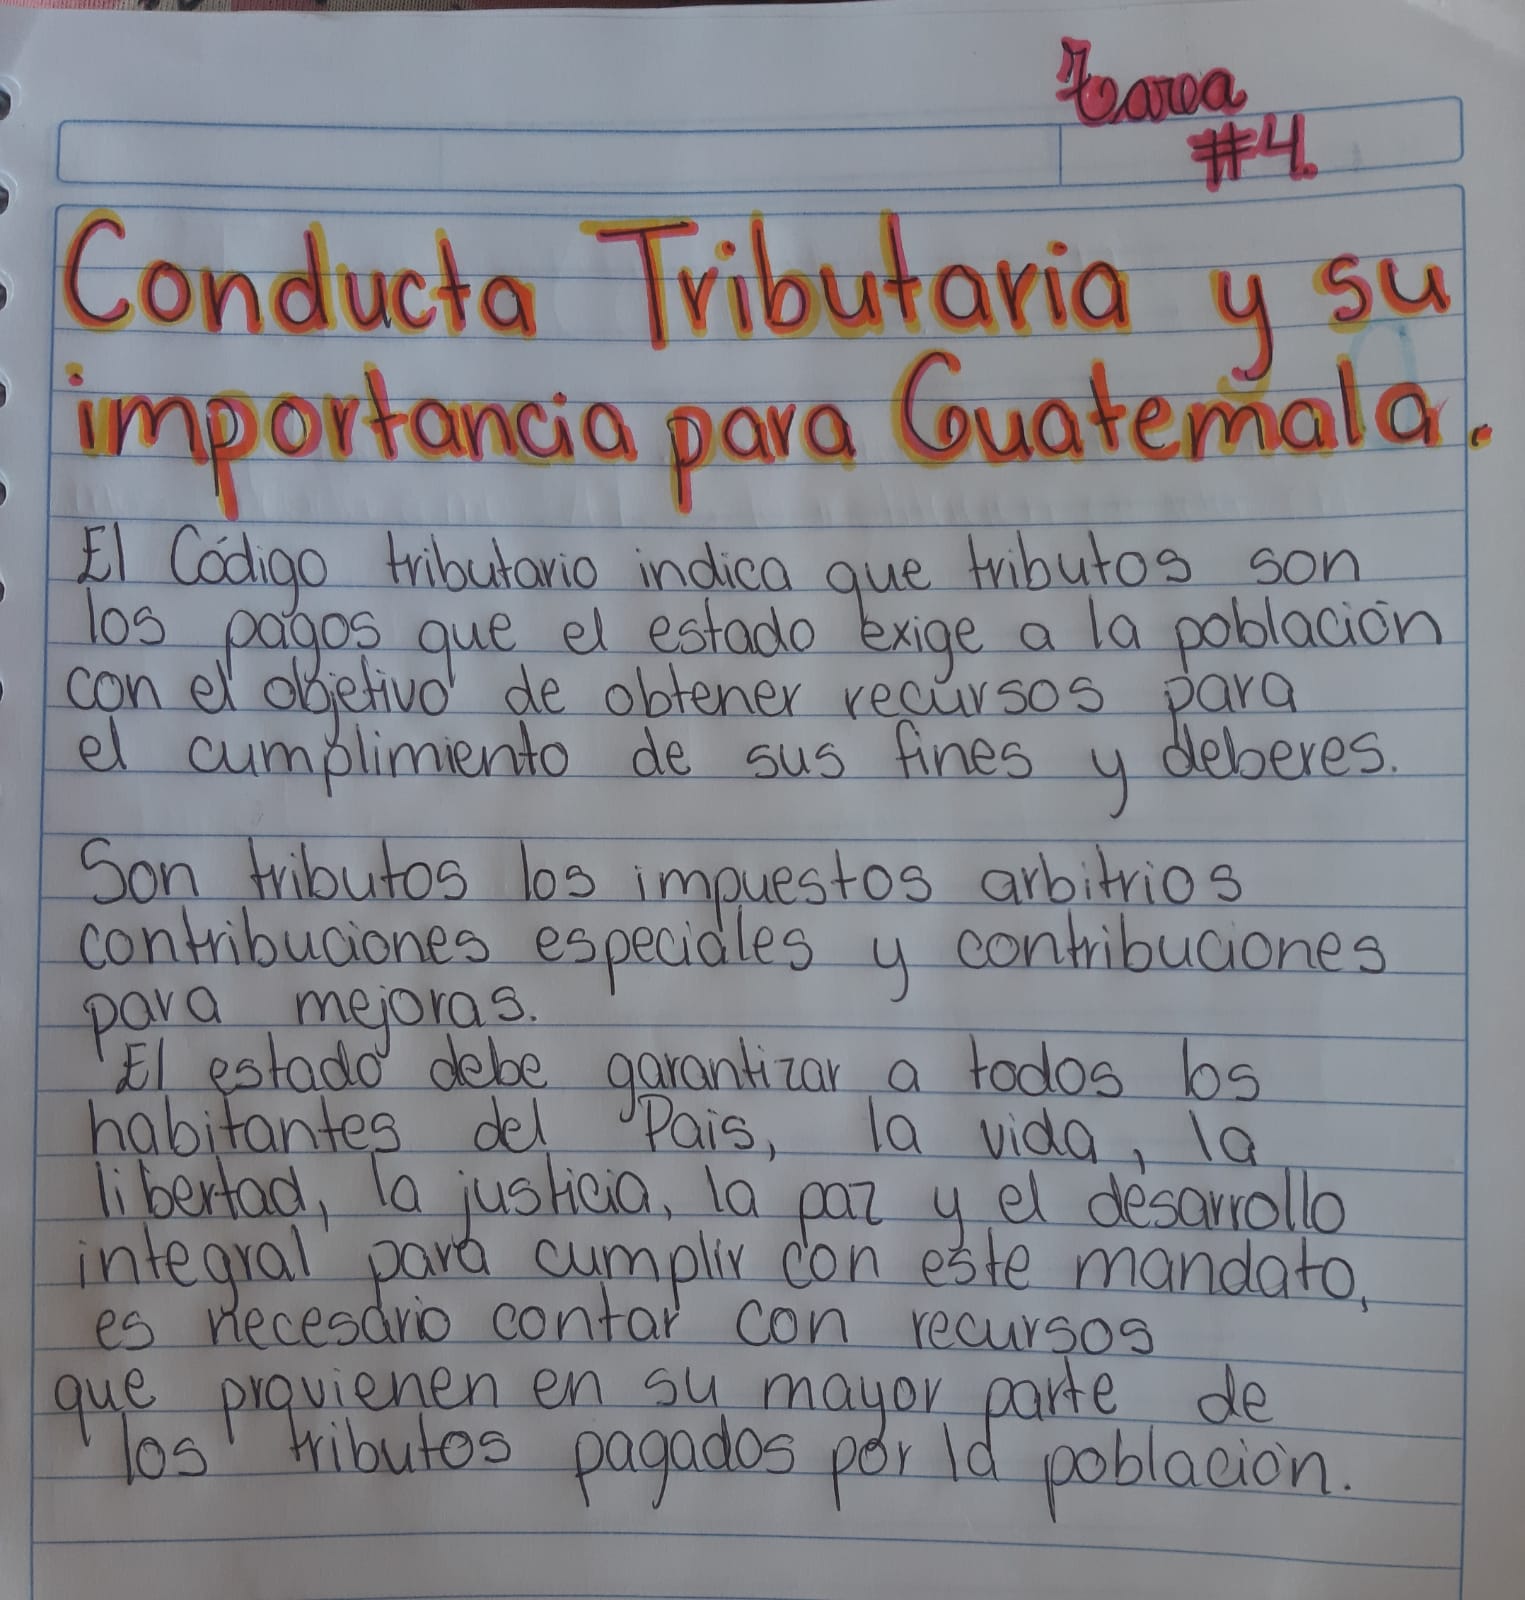 Tarea
#4.
Conducta Tributaria y su
importancia para Guatemala.
El Código tributario indica que tributos son
los pagos que el estado exige a la población
con el objetivo de obtener recursos para
el cumplimiento de sus fines y deberes.
Son tributos los impuestos arbitrios
contribuciones especiales y contribuciones
para mejoras.
El estado debe garantizar a todos los
habitantes del Pais, la vida, la
libertad, la justicia, la paz y el desarrollo
integral para cumplir con este mandato,
es necesario contar con recursos
que provienen en su mayor parte de
los tributos pagados por la población.